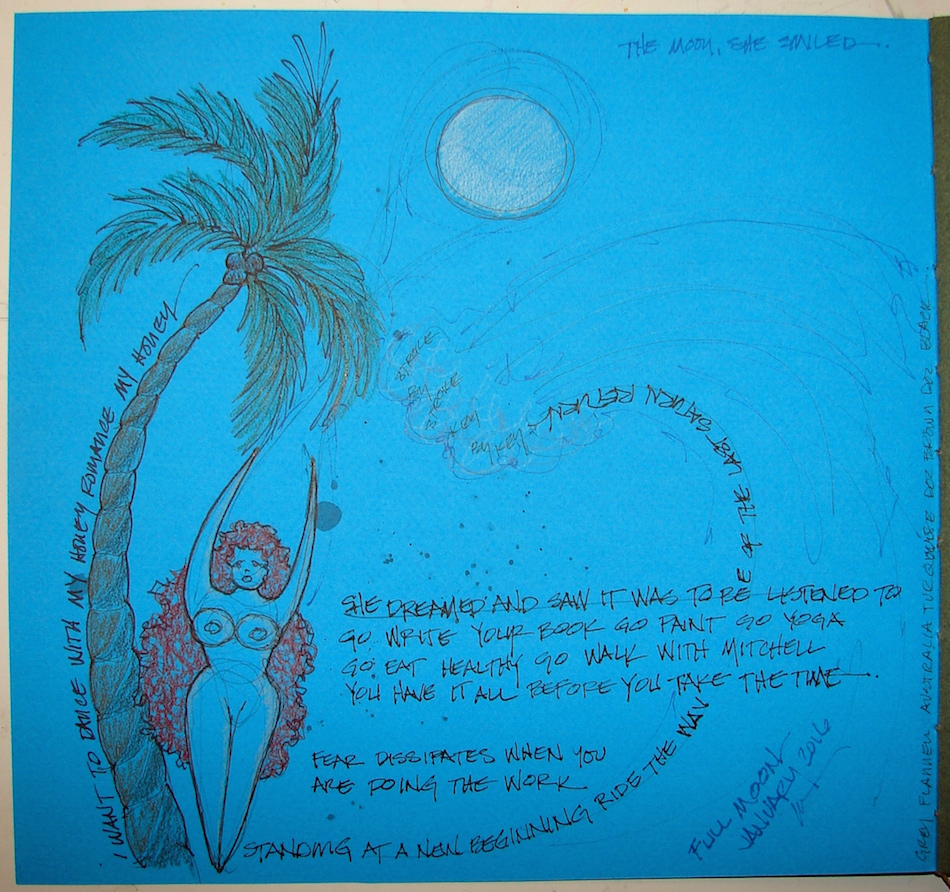 THE MOON, SHE SMILED.
I WANT TO DANCE WITH MY HONEY ROMANCE MY HONEY
BY KEY
SHE DREAMED AND SAW IT WAS TO BE LISTENED TO
GO WRITE YOUR BOOK GO PAINT GO YOGA
GO EAT HEALTHY GO WALK WITH MITCHELL
YOU HAVE IT ALL BEFORE YOU TAKE THE TIME.
FEAR DISSIPATES WHEN YOU
ARE DOING THE WORK
STANDING AT A NEW BEGINNING RIDE THE WAVE OF THE LAST SATURN RETURN
FULL MOON
JANUARY 2016
GREY FLANNEL AUSTRALIA TURQUOISE DPZ BROWN DPZ BLACK